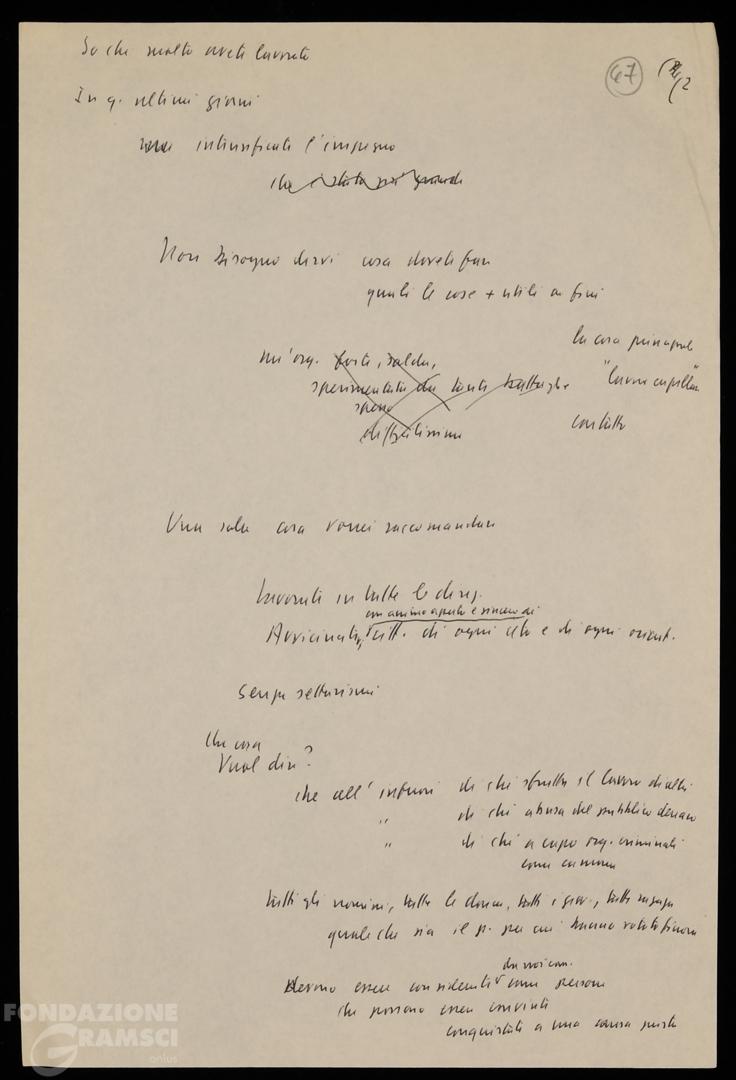 So che molto avete lavorato
47
In q. ultimi giorni
intensificate l'impegno
che è stato più grande
Non bisogno dirvi cosa dovete fare
quali le cose + utili ai fini
la cosa principale
un'org. forte, salda,
sperimentata da tante battaglie
"lavoro capillare"
spesso
difficilissime
contatto
Una sola cosa vorrei raccomandare
Lavorate in tutte le direz.
con animo aperto e sincero di
Avvicinate citt. di ogni ceto e di ogni orient.
Senza settarismi
Che cosa
Vuol dire?
che all'infuori di chi sfrutta il lavoro di altri
" di chi abusa del pubblico denaro
" di chi a capo org. criminali
come camorra
tutti gli uomini, tutte le donne, tutti i giov., tutte ragazze
quale che sia il p. per cui hanno votato finora
da noi com.
devono essere considerati come persone
che possono essere convinti
conquistati a una causa giusta
FONDAZIONE
GRAMSCI
onlus